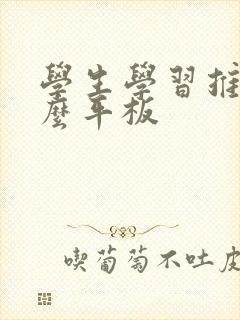 學生學習推
麼平板
喫葡萄不吐皮